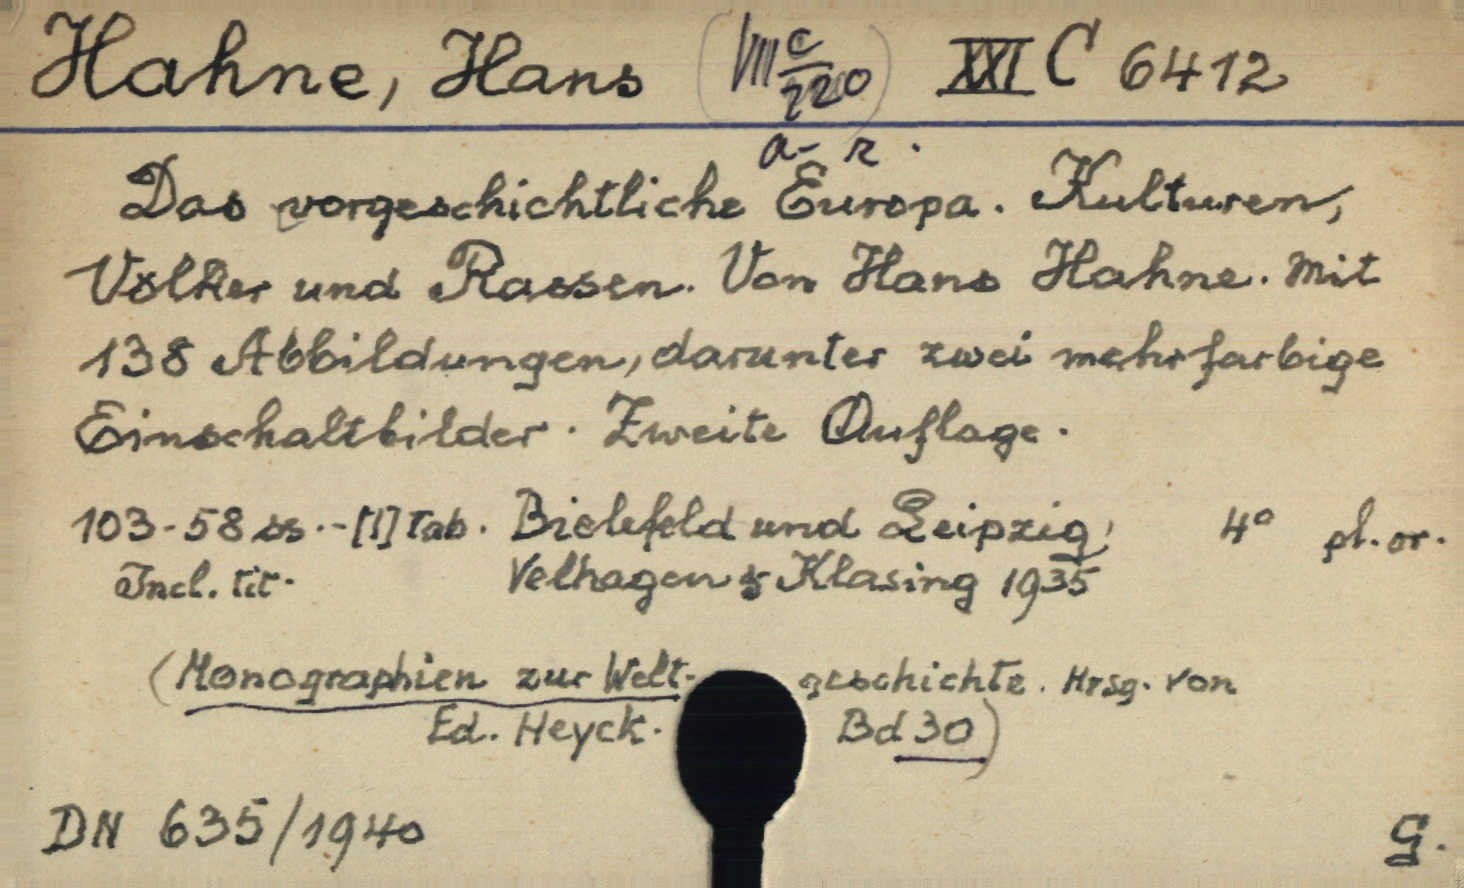 Hahne, Hans (VIII c/220) XXI C 6412
a- r.
Das vorgeschichtliche Europa. Kulturen,
Völker und Rassen. Von Hans Hahne. Mit
138 Abbildungen, darunter zwei mehrfarbige
Einschaltbilder. Zweite Auflage.
103-58 ss. - [1] tab. Bielefeld und Leipzig, 4° pl. or.
Incl. tit. Velhagen & Klasing 1935
(Monographien zur Welt- geschichte. Hrsg. von
Ed. Heyck. Bd 30)
DN 635/1940 G.